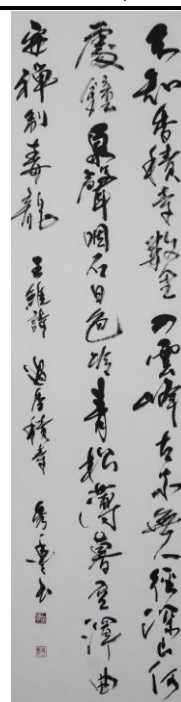 不知香積寺數里入雲峰古木無人徑深山何
處鐘泉聲咽石日色冷青松薄暮空潭曲
安禪制毒龍 王維詩 過香積寺